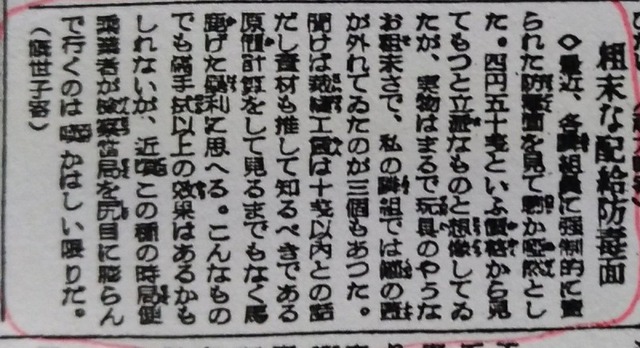 粗末な配給防毒面
◇最近、各隣組員に強制的に賣
られた防毒面を見て聊か啞然とし
た。四円五十戔といふ價格から見
てもつと立派なものと想像してゐ
たが、実物はまるで玩具のやうな
お粗末さで、私の隣組では
が外れてゐたのが三個もあつた。
聞けば裁縫工賃は十戔以内との話
だし資材も推して知るべきである
原價計算をして見るまでもなく馬
鹿げた暴利に思へる。こんなもの
でも手拭以上の効果はあるかも
しれないが、近頃この種の時局便
乘業者が當局を尻目に膨らん
で行くのは嘆かはしい限りだ。
(憂世子寄)